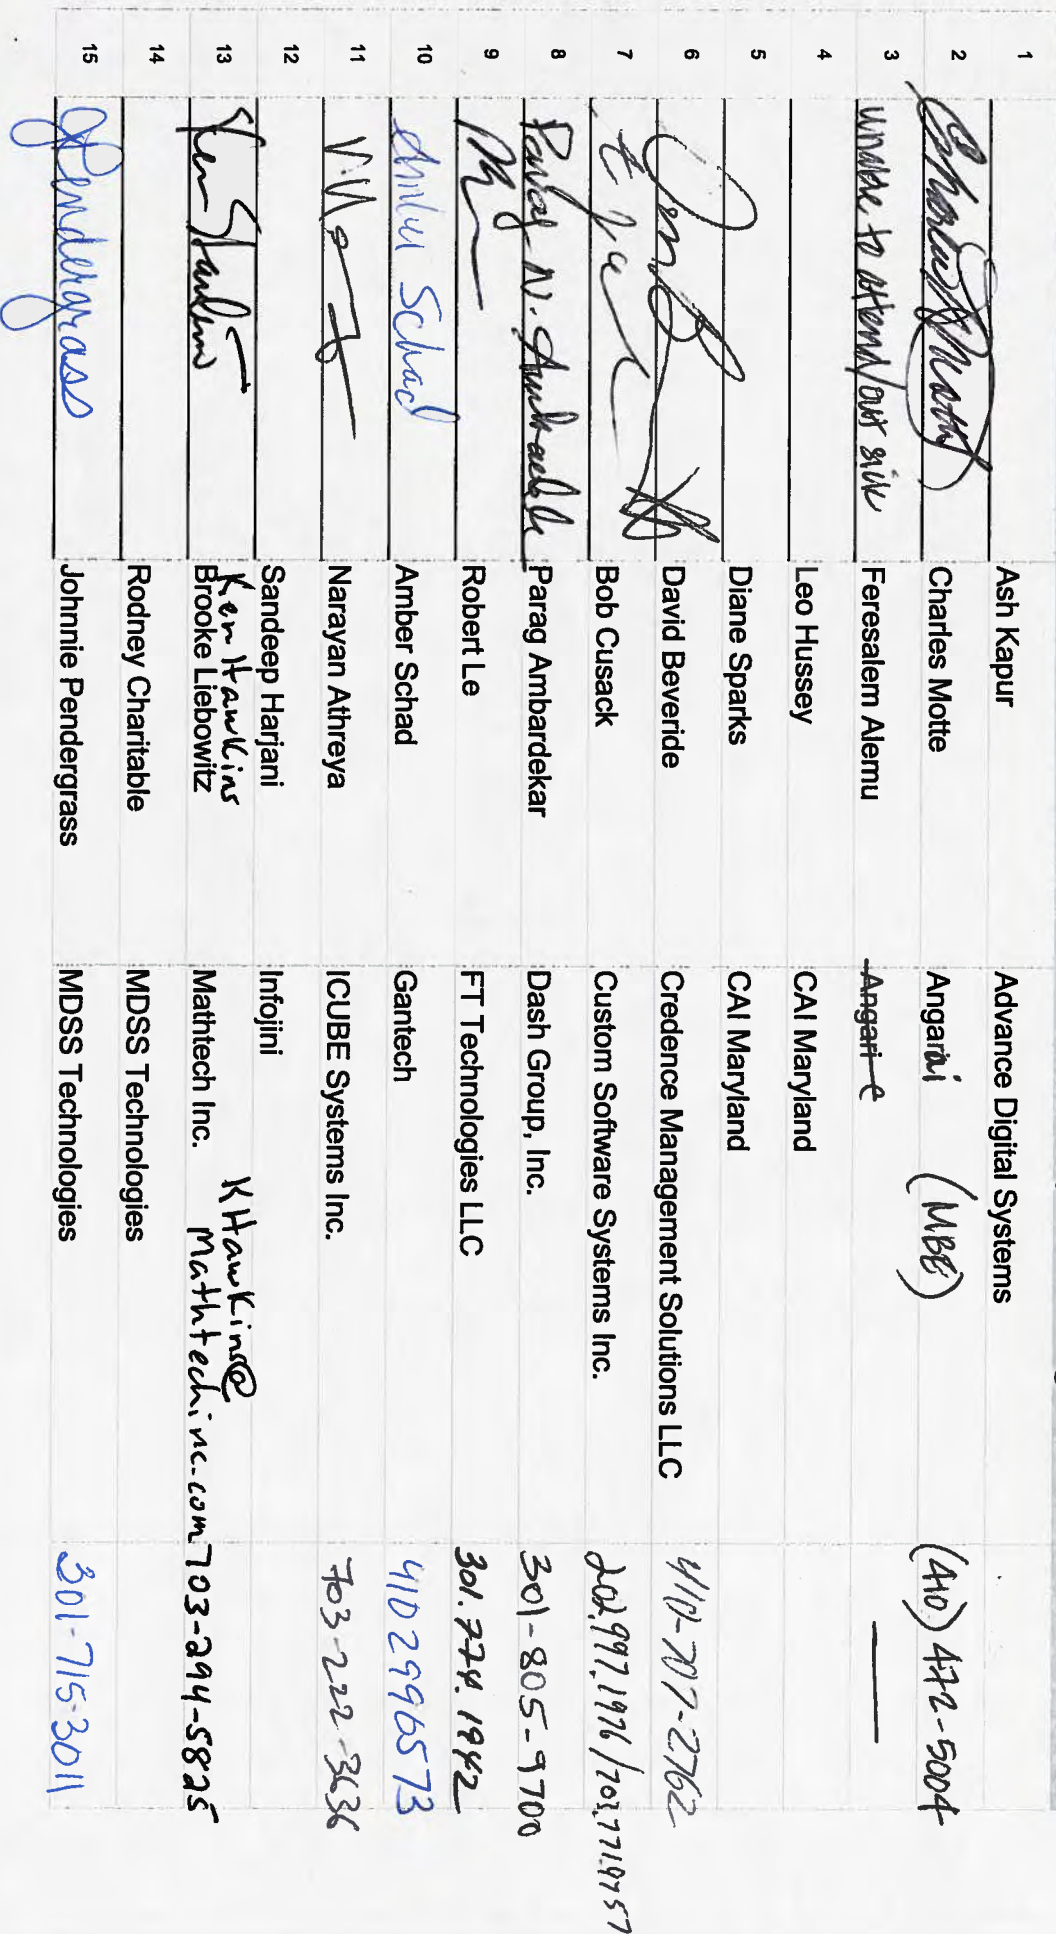 1 Ash Kapur Advance Digital Systems
2 Charles Motte Angarai (MBE) (410) 472-5004
3 unable to attend/out sick Feresalem Alemu Angari e
4 Leo Hussey CAI Maryland
5 Diane Sparks CAI Maryland
6 David Beveride Credence Management Solutions LLC 410-707-2762
7 Bob Cusack Custom Software Systems Inc. 202.997.1976/703.771.9757
8 Parag N. Ambardekar Parag Ambardekar Dash Group, Inc. 301-805-9700
9 Robert Le FT Technologies LLC 301.774.1942
10 Amber Schad Amber Schad Gantech 4102996573
11 Narayan Athreya ICUBE Systems Inc. 703-222-3636
12 Sandeep Harjani Infojini
13 Ken Hawkins Ken Hawkins KHawkins@
Brooke Liebowitz Mathtech Inc. Mathtechinc.com 703-294-5825
14 Rodney Charitable MDSS Technologies
15 JPendergrass Johnnie Pendergrass MDSS Technologies 301-715-3011